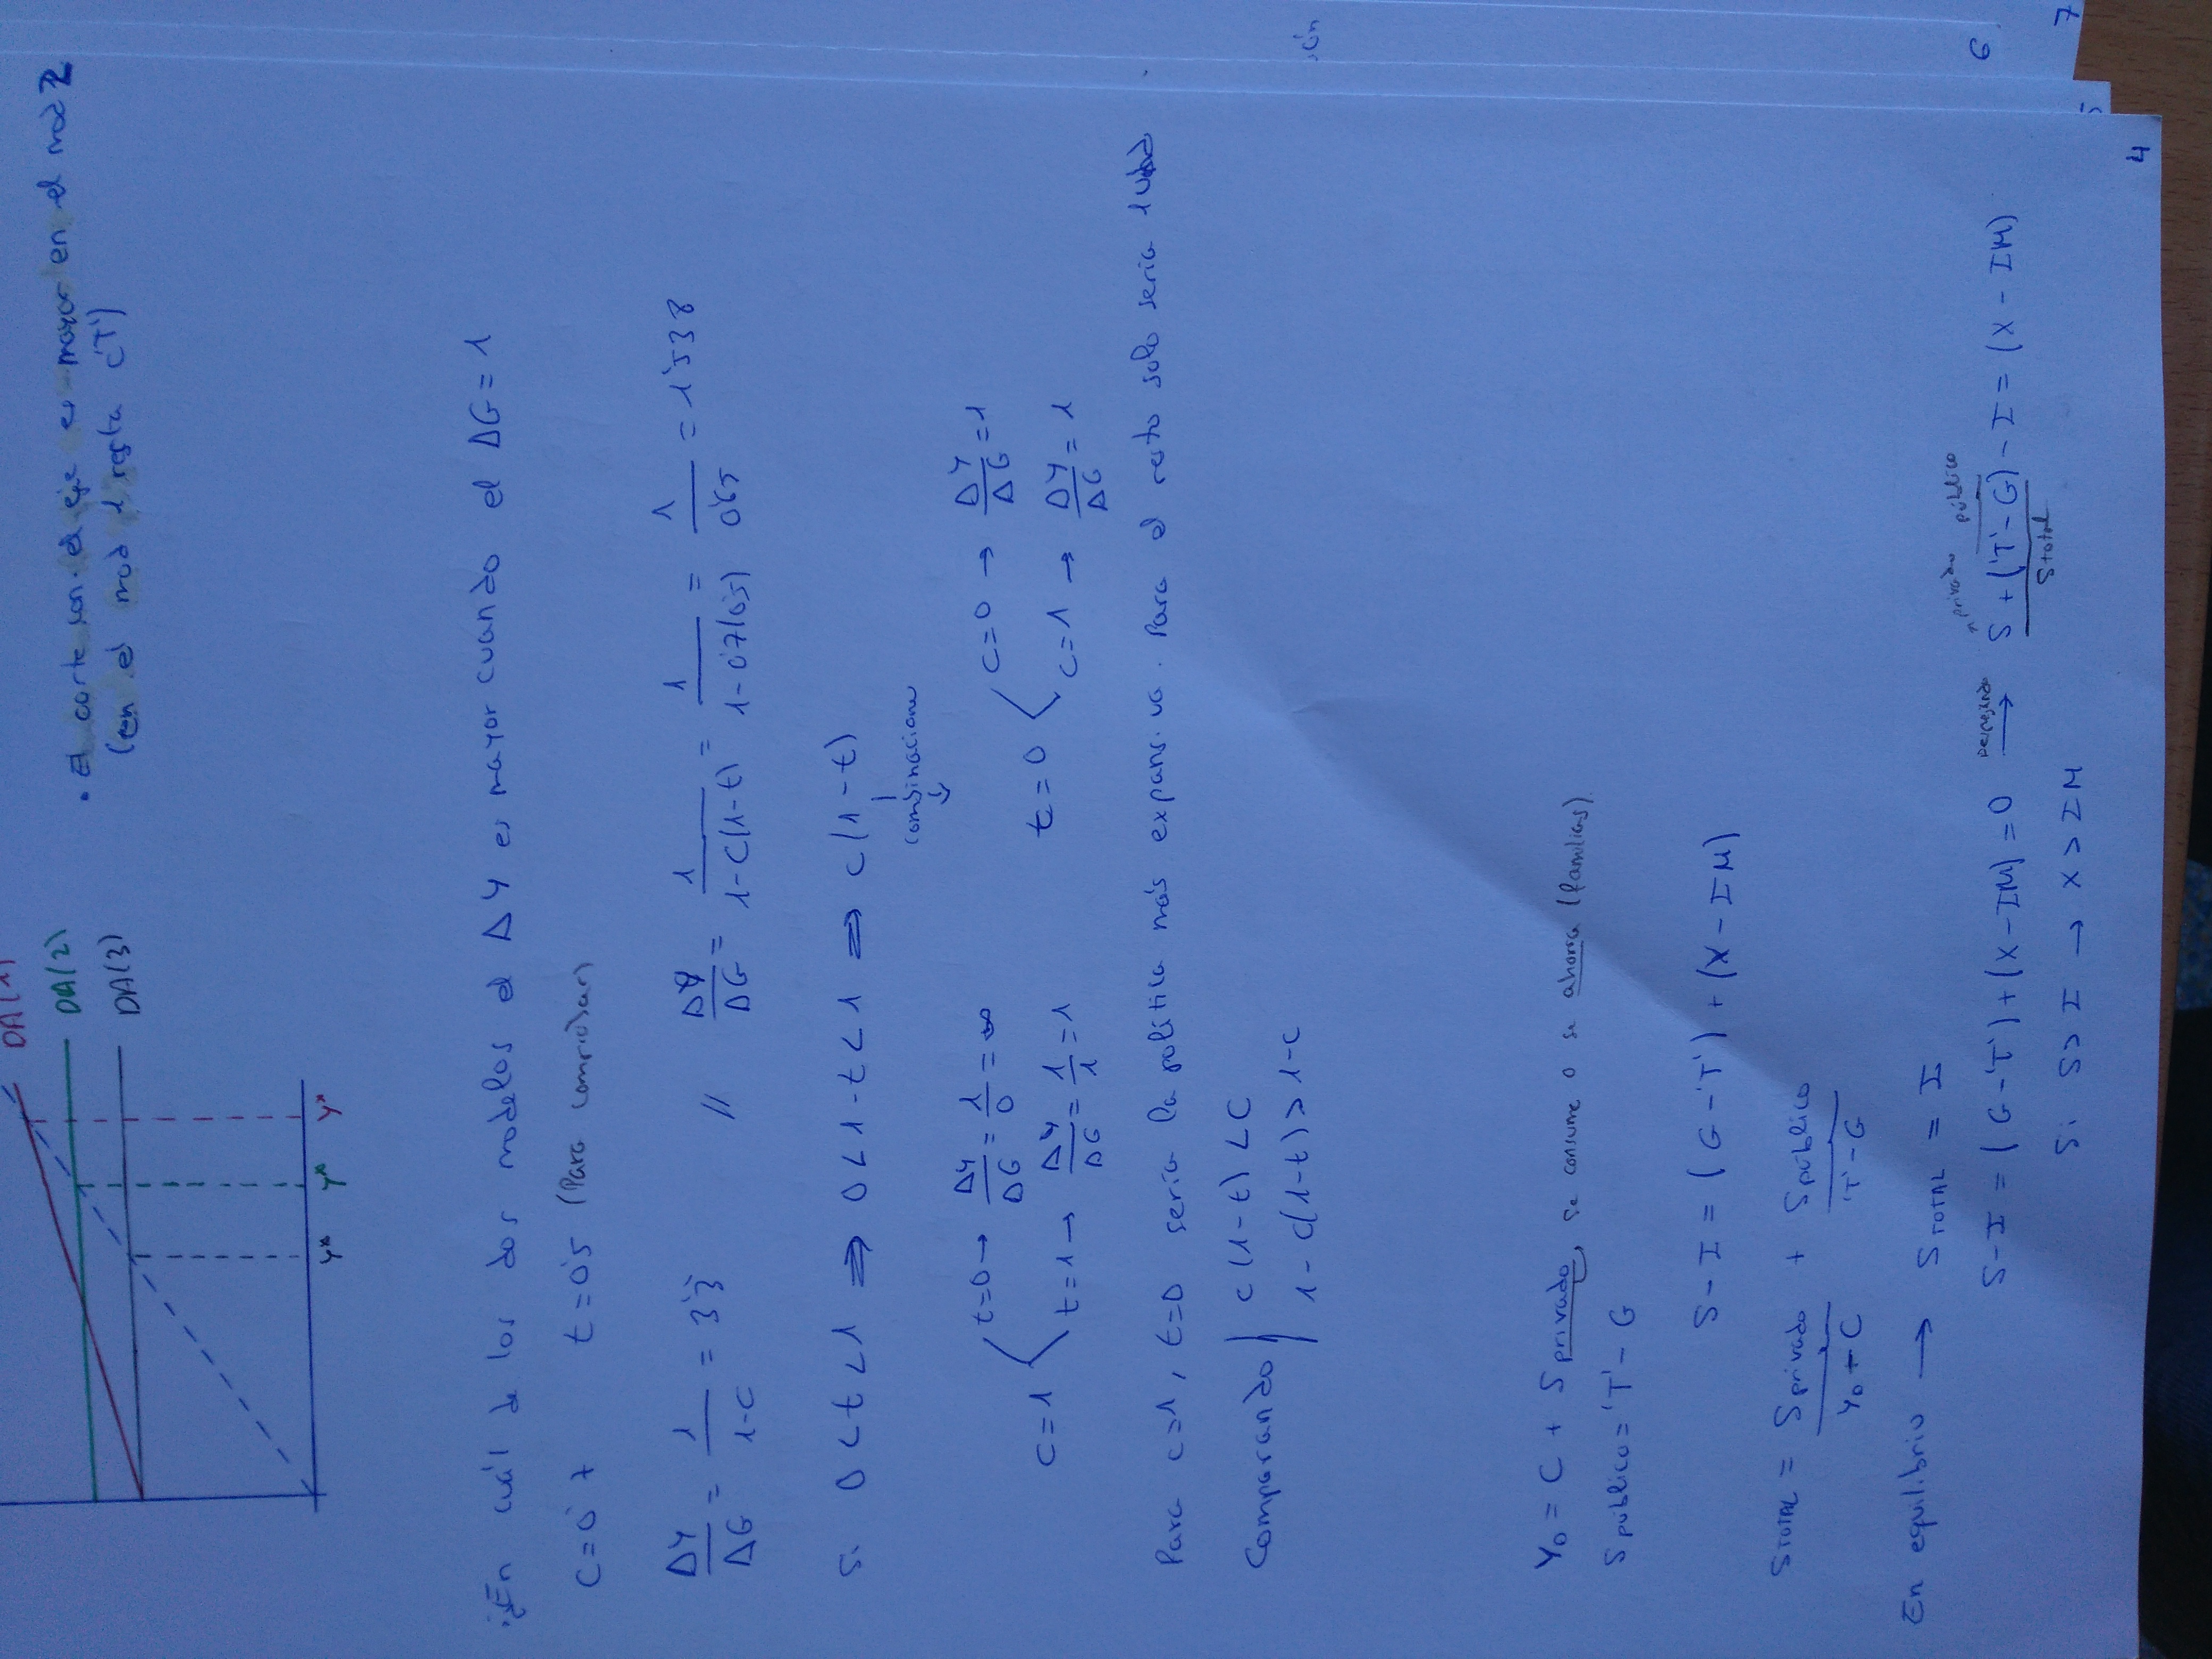 DA(1)
DA(2)
DA(3)
Y* Y* Y*
• El corte con el eje es mayor en el mod 2
(en el mod 1 resta cT')
¿En cuál de los dos modelos el ΔY es mayor cuando el ΔG = 1
C = 0'7 t = 0'5 (Para comprobar)
ΔY/ΔG = 1/1-C = 3'3 // ΔY/ΔG = 1/1-C(1-t) = 1/1-0'7(0'5) = 1/0'65 = 1'538
Si 0 < t < 1 ⇒ 0 < 1-t < 1 ⇒ C(1-t)
combinaciones
C=1 t=0 → ΔY/ΔG = 1/0 = ∞
t=1 → ΔY/ΔG = 1/1 = 1
t=0 C=0 → ΔY/ΔG = 1
C=1 → ΔY/ΔG = 1
Para C=1, t=0 sería la política más expansiva. Para el resto solo sería 1
Comparando C(1-t) < C
1-C(1-t) > 1-C
YD = C + S privado, se consume o se ahorra (familias)
S público = 'T' - G
S - I = (G - 'T') + (X - IM)
STOTAL = S privado + S público
YD - C 'T' - G
En equilibrio → STOTAL = I
S-I = (G-'T') + (X-IM) = 0 despejando → S + ('T' - G) - I = (X - IM)
privado público
S total
Si S > I → X > IM
4
5
6
7
ión